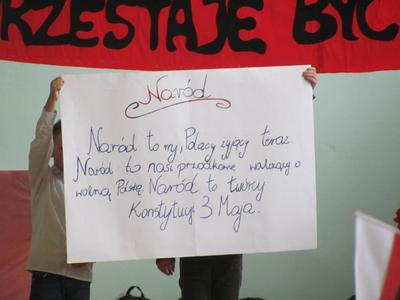 RZESTAJE BYĆ
Naród
Naród to my, Polacy żyjący teraz.
Naród to nasi przodkowie walczący o
wolną Polskę. Naród to twórcy
Konstytucji 3 Maja.